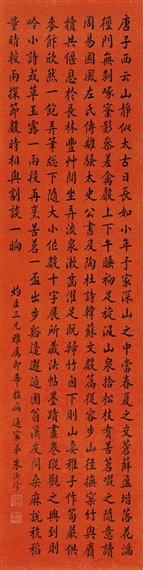 唐子西云山靜似太古日長如小年予家深山之中當春夏之交蒼蘚盈堦落花滿
徑門無剝啄松影參差禽聲上下午睡初足旋汲山泉拾松枝煮苦茗啜之隨意讀
周易國風左氏傳離騷太史公書及陶杜詩韓蘇文數篇從容步山徑撫松竹與麛
犢共偃息於長林豐草間坐弄流泉漱齒濯足既歸竹窗下則山妻稚子作筍蕨供
麥飯欣然一飽弄筆窗下隨大小作數十字展所藏法帖墨蹟畫卷縱觀之興到則
吟小詩或草玉露一兩段再烹苦茗一盃出步谿邊邂逅園翁溪友問桑麻說秔稻
量晴較雨探節數時相與劇談一晌
灼臣三兄雅屬即希指正 通家弟朱汝珍